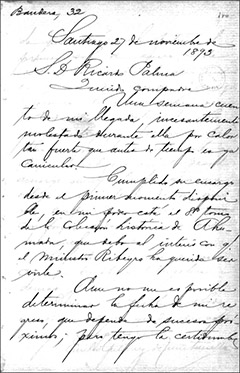 Bandera, 32
Santiago 27 de noviembre de
1893
S. D. Ricardo Palma
Querido compadre
Una semana cuen-
to de mi llegada, incesantemente
molestado durante ella por calor
tan fuerte que antes de tiempo es ya
canicular.
Cumplido su encargo
desde el primer momento disponi-
ble, en mi poder está el 8º tomo
de la Coleccion historica de Ahu-
mada, que debo al interés con q.
el Ministro Ribeyro ha querido ser
virle.
Aun no me es posible
determinar la fecha de mi re
greso, que depende de sucesos pro-
ximos; pero tengo la certidumbre